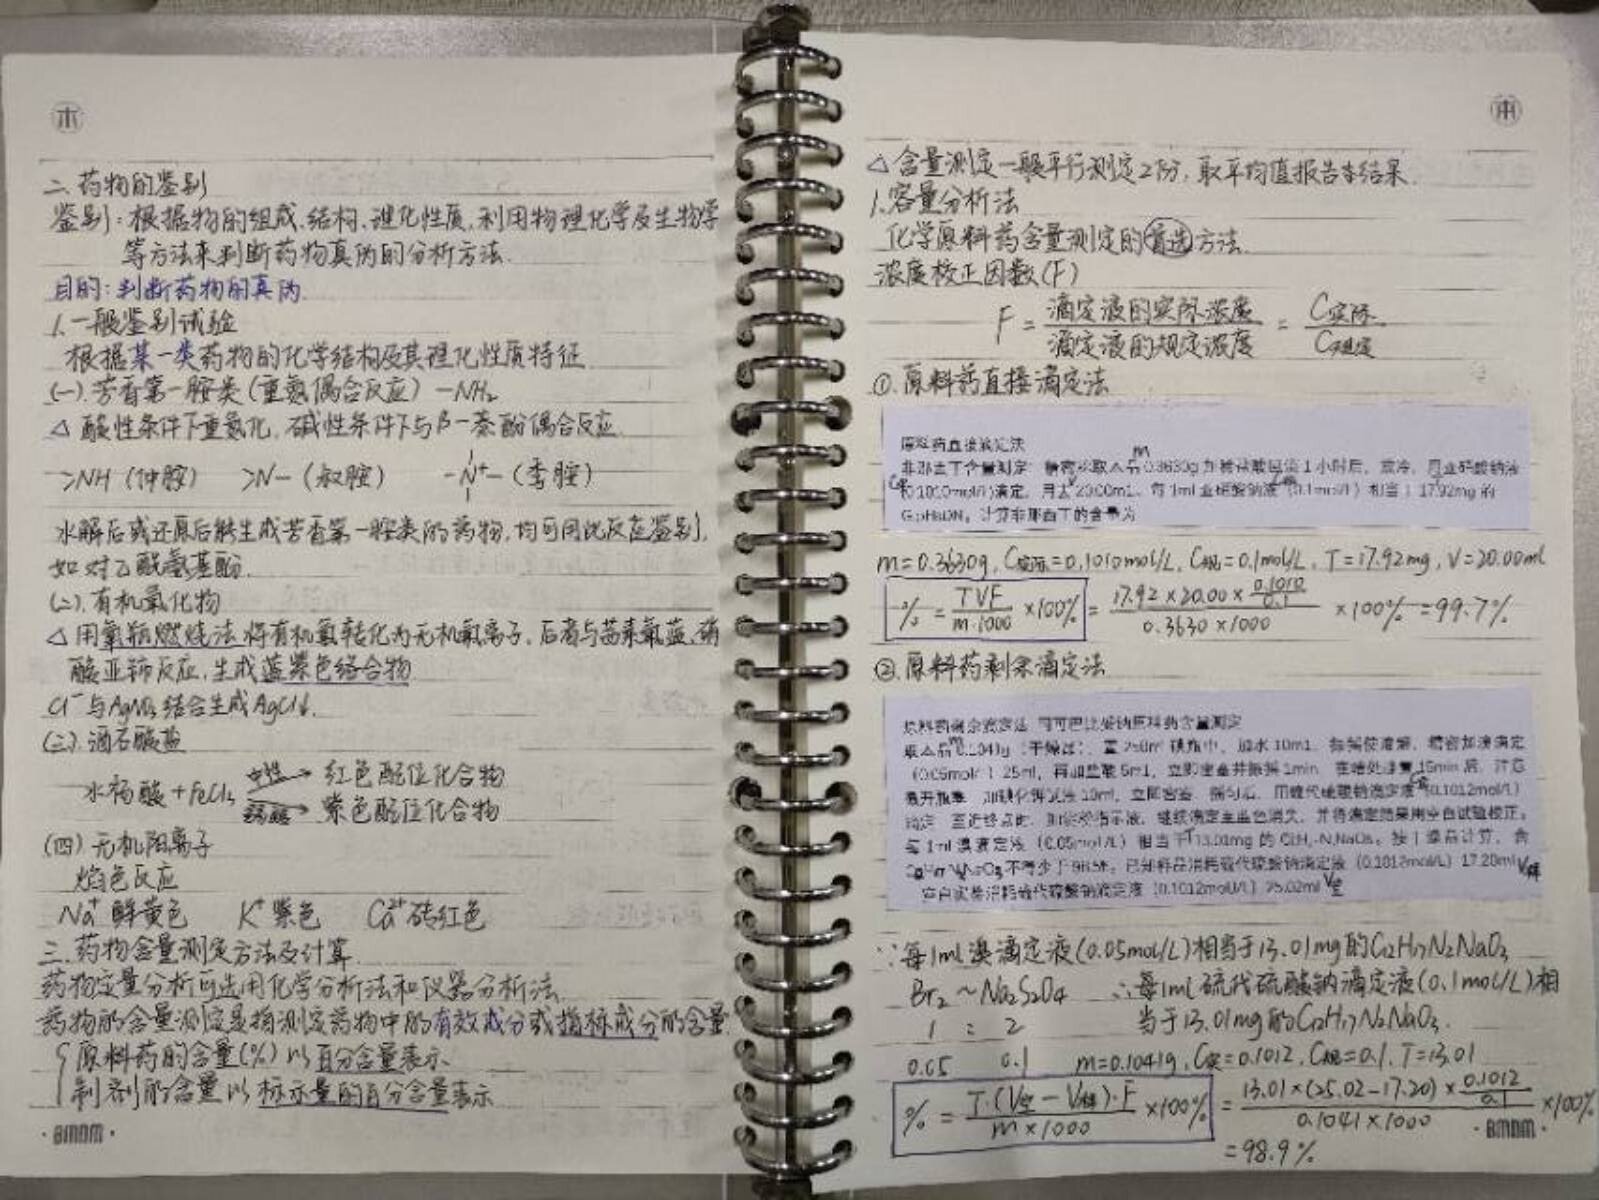 二、药物的鉴别
鉴别：根据物的组成、结构、理化性质，利用物理化学及生物学
等方法来判断药物真伪的分析方法.
目的：判断药物的真伪.
1.一般鉴别试验
根据某一类药物的化学结构及其理化性质特征
(一).芳香第一胺类(重氮偶合反应) —NH₂
△ 酸性条件下重氮化, 碱性条件下与β-萘酚偶合反应.
>NH (仲胺) >N— (叔胺) —N⁺— (季胺)
水解后或还原后能生成芳香第一胺类的药物, 均可用此反应鉴别,
如对乙酰氨基酚.
(二).有机氟化物
△ 用氧瓶燃烧法将有机氟转化为无机氟离子, 后者与茜素氟蓝、硝
酸亚铈反应, 生成蓝紫色络合物
Cl⁻与AgNO₃结合生成AgCl↓.
(三).酒石酸盐
水杨酸+FeCl₃ 中性→ 红色配位化合物
弱酸→ 紫色配位化合物
(四) 无机阳离子
焰色反应
Na⁺ 鲜黄色 K⁺ 紫色 Ca²⁺ 砖红色
三.药物含量测定方法及计算
药物定量分析可选用化学分析法和仪器分析法.
药物的含量测定是指测定药物中的有效成分或指标成分的含量
{原料药的含量(%)以百分含量表示.
制剂的含量以标示量的百分含量表示
·BMDM·
△ 含量测定一般平行测定2份, 取平均值报告结果.
1.容量分析法
化学原料药含量测定的首选方法.
浓度校正因数(F)
F = 滴定液的实际浓度/滴定液的规定浓度 = C实际/C规定
①.原料药直接滴定法
原料药直接滴定法
m
非那西丁含量测定：精密称取本品0.3630g加稀盐酸回流1小时后，放冷，用亚硝酸钠液
(0.1010mol/L)滴定，用去20.00mL。每1ml亚硝酸钠液（0.1mol/L）相当于17.92mg的
计算非那西丁的含量为
m=0.3630g, C实际=0.1010mol/L, C规=0.1mol/L, T=17.92mg, V=20.00ml
% = TVF/m·1000 ×100% = 17.92×20.00×0.1010/0.1 / 0.3630×1000 ×100% =99.7%
②.原料药剩余滴定法
原料药剩余滴定法 司可巴比妥钠原料药含量测定
取本品0.1041g（干燥过），置250ml碘瓶中，加水10ml，振摇使溶解，精密加溴滴定
（0.05mol/L）25ml，再加盐酸5ml，立即密塞并振摇1min，在暗处静置15min后，注意
微开瓶塞，加碘化钾试液10ml，立即密塞，摇匀后，用硫代硫酸钠滴定液(0.1012mol/L)
滴定，至近终点时，加淀粉指示液，继续滴定至蓝色消失，并将滴定结果用空白试验校正。
每1ml溴滴定液（0.05mol/L）相当于13.01mg的
不得少于98.5%，已知样品消耗硫代硫酸钠滴定液（0.1012mol/L）17.20ml V样
空白试验消耗硫代硫酸钠滴定液（0.1012mol/L）25.02ml V空
∵每1ml溴滴定液(0.05mol/L)相当于13.01mg的C₁₂H₁₇N₂NaO₃
Br₂ ~ Na₂S₂O₄ ∴每1ml硫代硫酸钠滴定液(0.1mol/L)相
1 : 2 当于13.01mg的C₁₂H₁₇N₂NaO₃.
0.05 0.1 m=0.1041g, C实=0.1012, C规=0.1, T=13.01
% = T·(V空−V样)·F/m×1000 ×100% = 13.01×(25.02−17.20)×0.1012/0.1 / 0.1041×1000 ×100%
=98.9%
·BMDM·